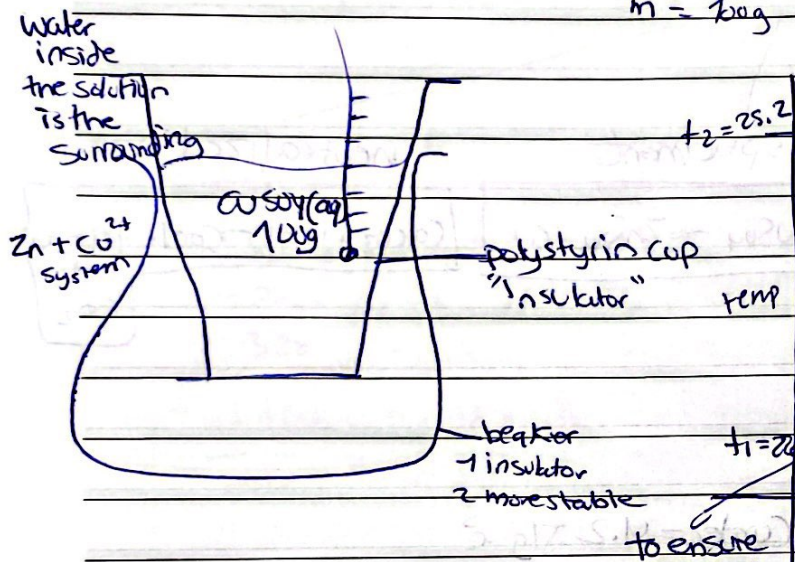 m = 100g
water
inside
the solution
is the
surrounding
t2 = 25.2
CuSO4(aq)
100g
Zn + Cu2+
system
polystyrin cup
"Insulator"
temp
beaker
1 insulator
2 more stable
t1 = 2
to ensure